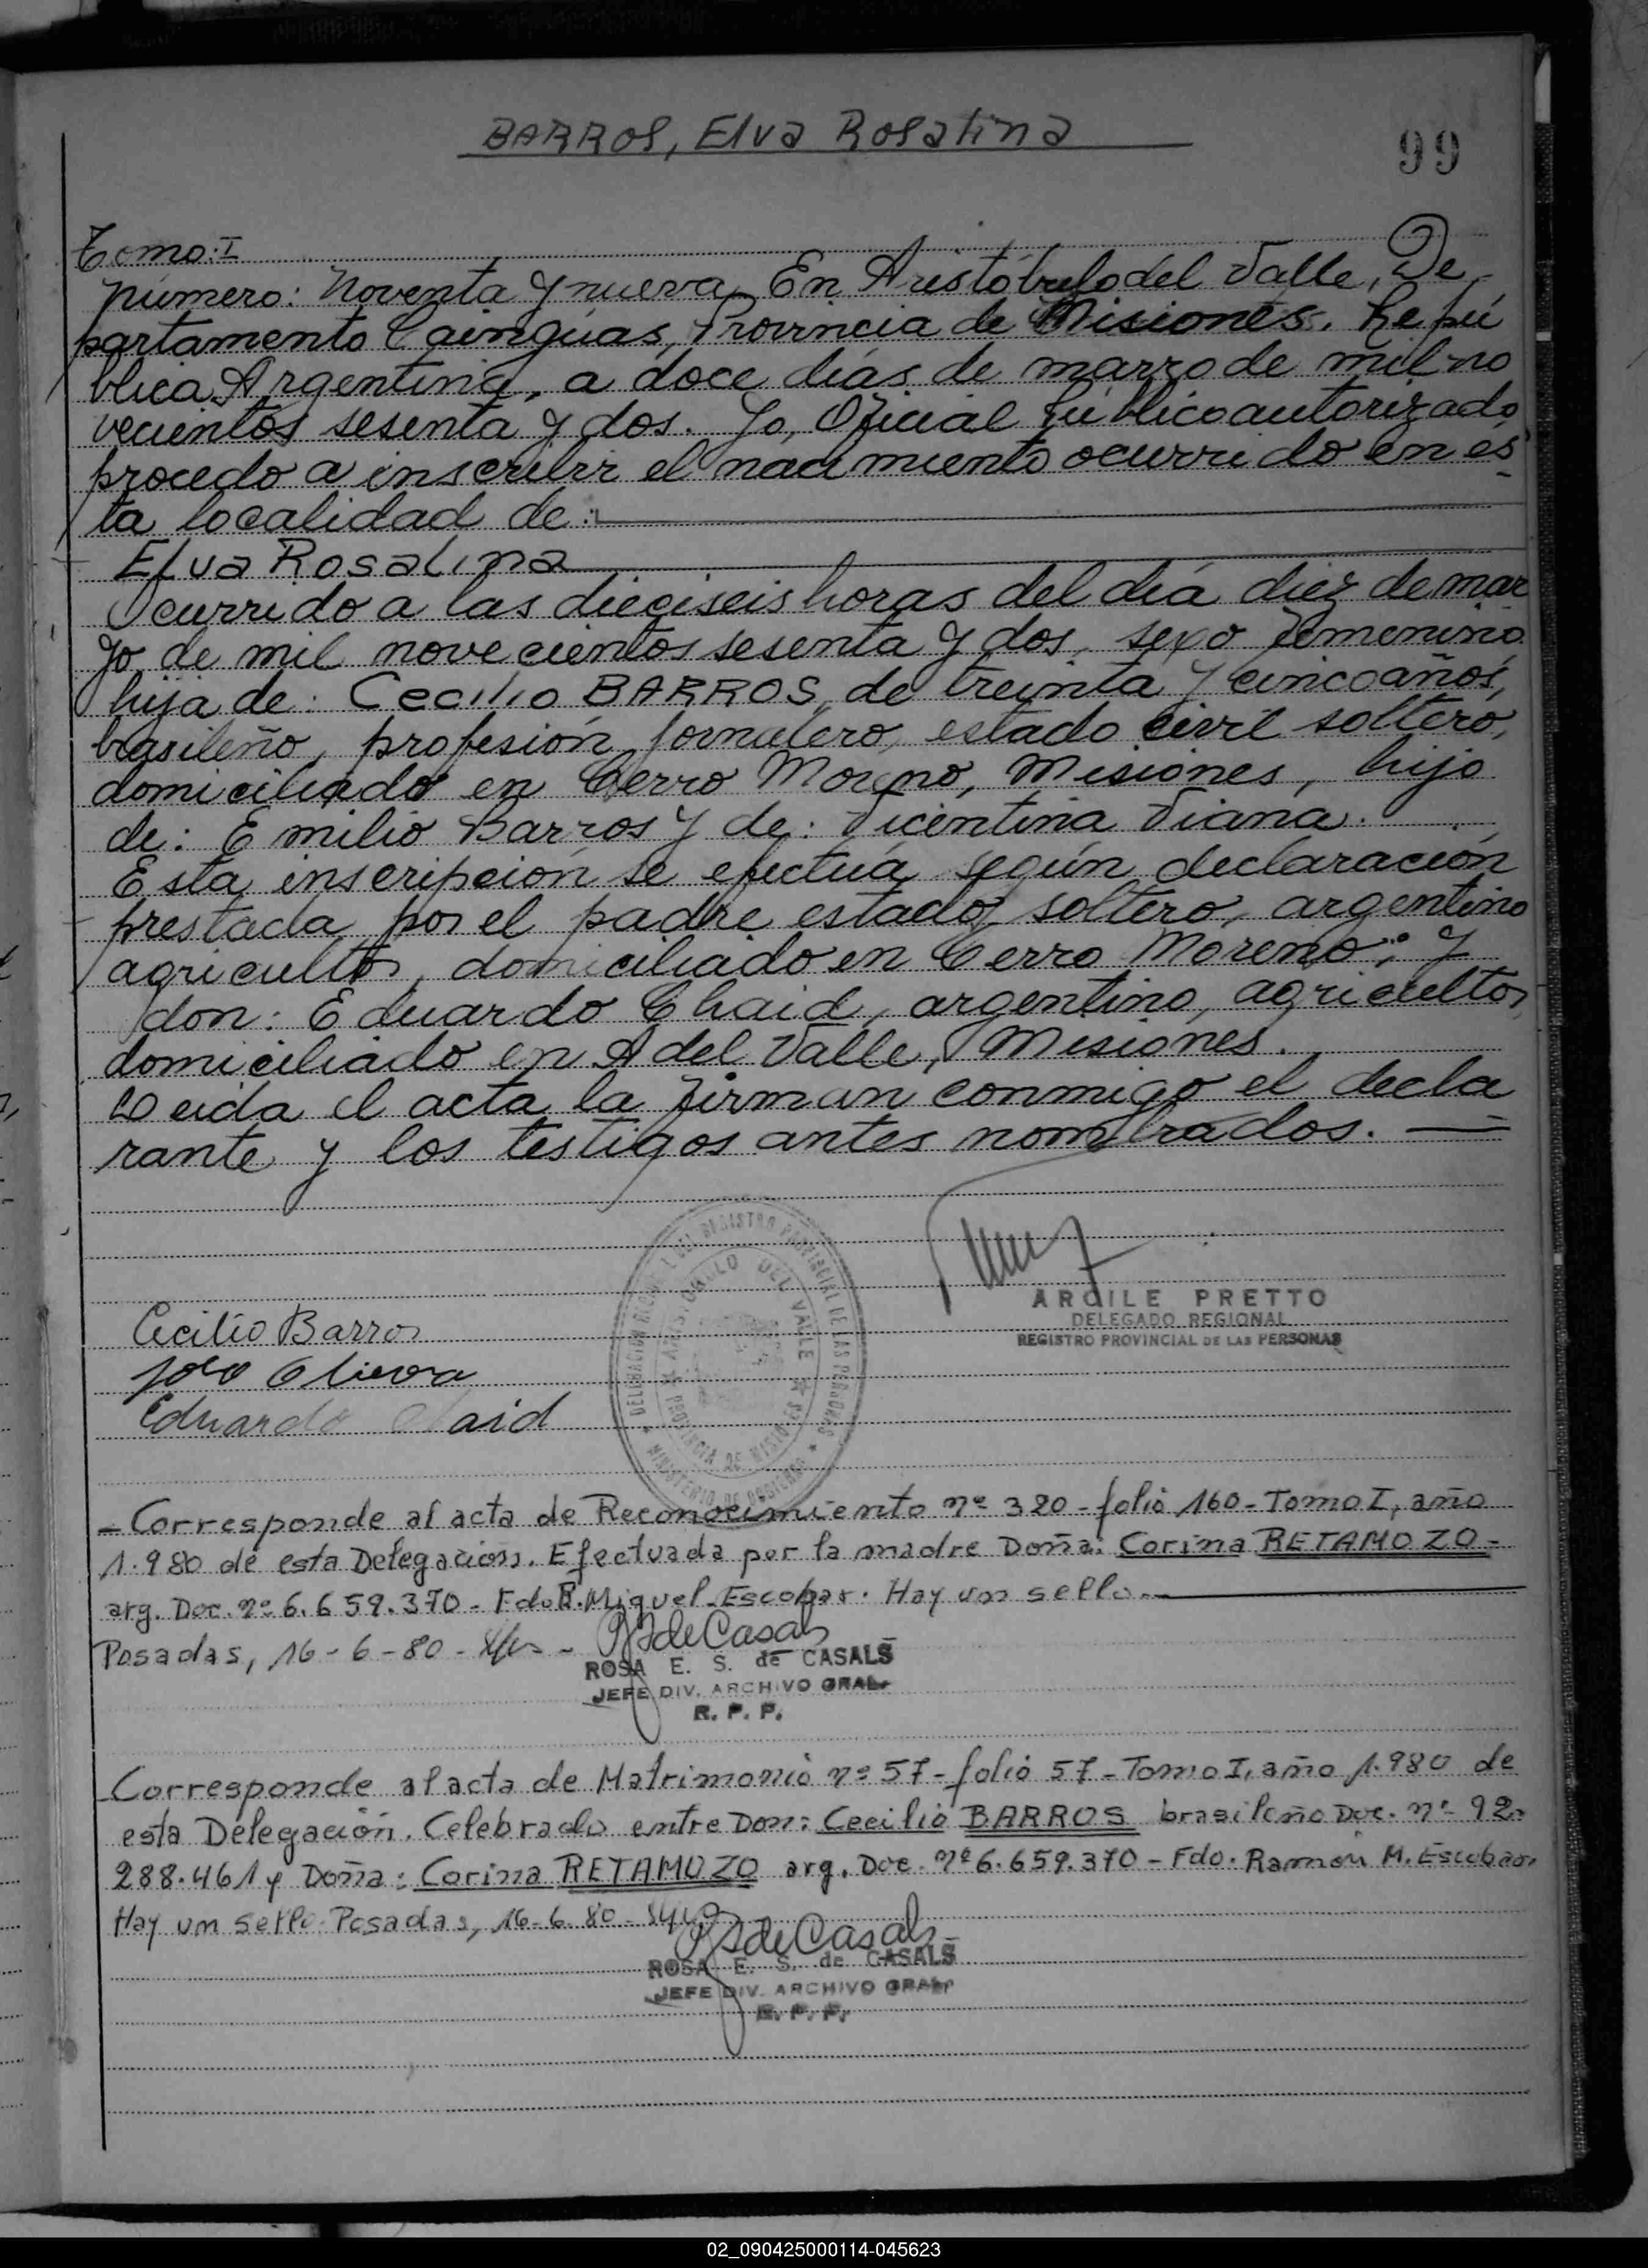 BARROS, Elva Rosalina
99
Tomo: I
Número: Noventa y nueve. En Aristóbulo del Valle, De
partamento Cainguas, Provincia de Misiones. Repú
blica Argentina, a doce días de marzo de mil no
vecientos sesenta y dos. Yo, Oficial Público autorizado
procedo a inscribir el nacimiento ocurrido en és
ta localidad de:
Elva Rosalina
Ocurrido a las dieciseis horas del día diez de mar
zo de mil novecientos sesenta y dos, sexo femenino
hija de: Cecilio BARROS, de treinta y cinco años,
brasileño, profesión jornalero, estado civil soltero,
domiciliado en Cerro Moreno, Misiones, hijo
de: Emilio Barros y de: Vicentina Viana.
Esta inscripción se efectúa según declaración
prestada por el padre estado soltero, argentino
agricultor, domiciliado en Cerro Moreno; y
don: Eduardo Chaid, argentino, agricultor,
domiciliado en A del Valle, Misiones.
Leida el acta la firman conmigo el decla
rante y los testigos antes nombrados.
REGISTRO PROVINCIAL DE LAS PERSONAS
DEL VALLE
PROVINCIA DE MISIONES
ARQILE PRETTO
DELEGADO REGIONAL
REGISTRO PROVINCIAL DE LAS PERSONAS
Cecilio Barros
Eduardo Chaid
- Corresponde al acta de Reconocimiento nº 320 - folio 160 - Tomo I, año
1.980 de esta Delegación. Efectuada por la madre Doña: Corina RETAMOZO -
arg. Doc. nº 6.659.370 - Fdo R. Miguel Escobar. Hay un sello.
Posadas, 16-6-80 -
RS de Casals
ROSA E. S. de CASALS
JEFE DIV. ARCHIVO GRAL.
R. P. P.
Corresponde al acta de Matrimonio nº 57 - folio 57 - Tomo I, año 1.980 de
esta Delegación. Celebrado entre Don: Cecilio BARROS brasileño Doc. nº 92.
288.461 y Doña: Corina RETAMOZO arg. Doc. nº 6.659.370 - Fdo. Ramón M. Escobar.
Hay un sello. Posadas, 16-6-80 -
RS de Casals
ROSA E. S. de CASALS
JEFE DIV. ARCHIVO GRAL.
R. P. P.
02_090425000114-045623